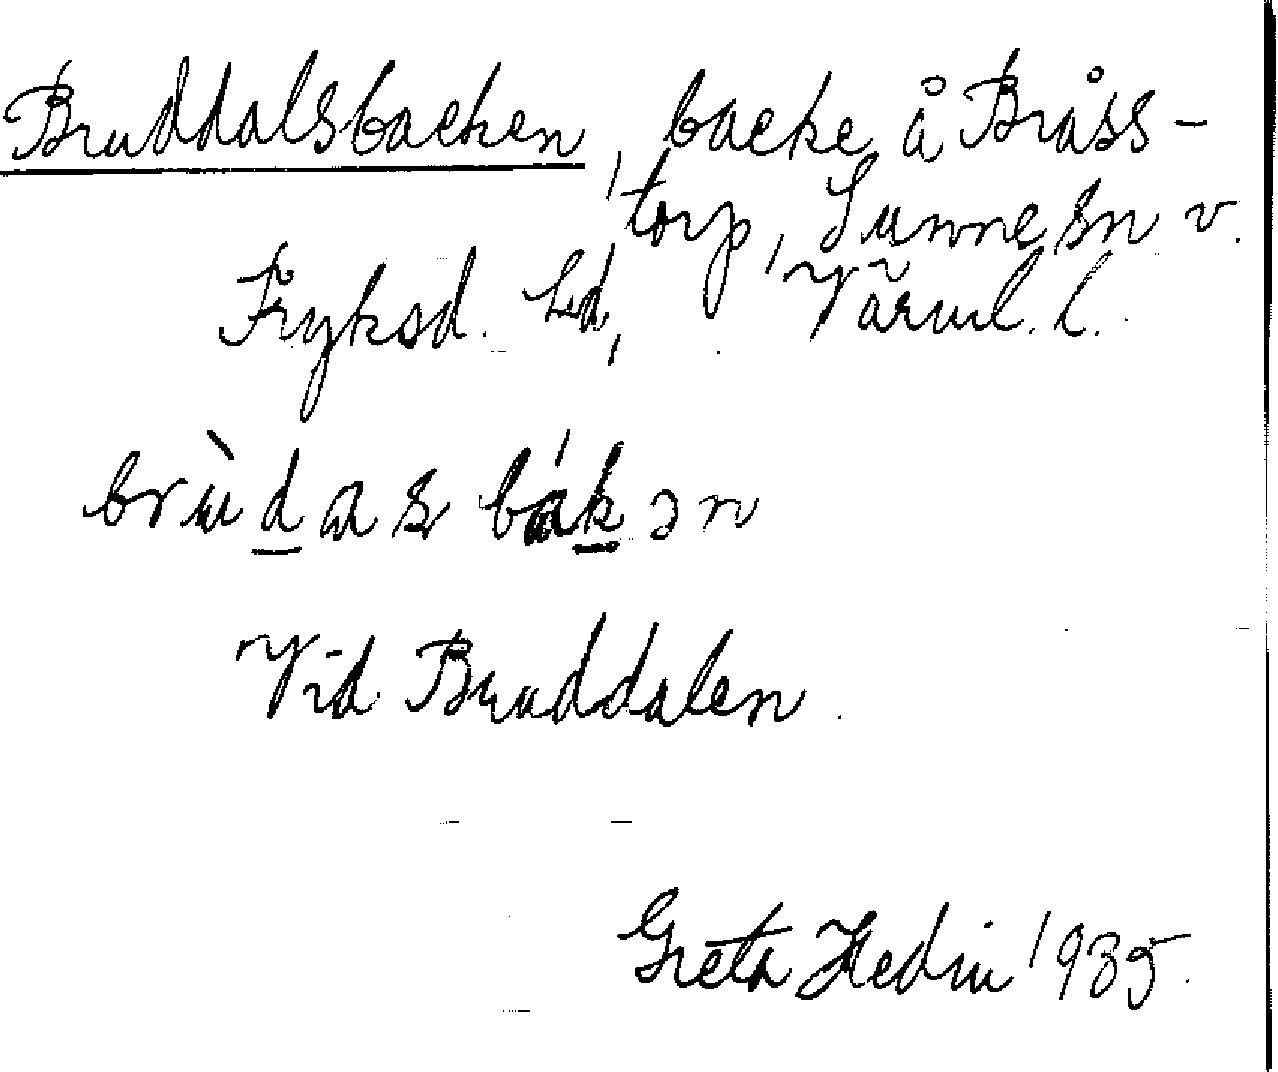 Bruddalsbacken, backe å Bråss-
torp, Sunne sn v.
Fryksd. hd, Värml. l.
brùdas bákən
Vid Bruddalen.
Greta Hedin 1935.